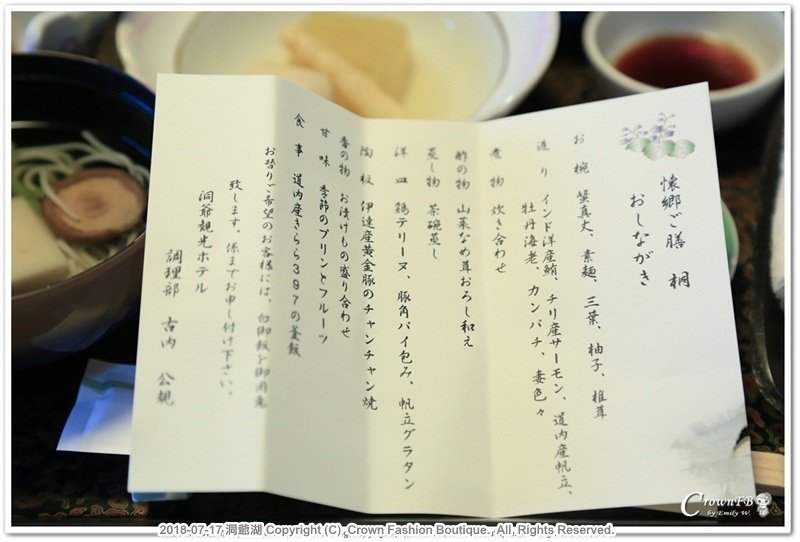 懐郷ご膳 桐
おしながき
お椀 蟹真丈、素麺、三葉、柚子、椎茸
造り インド洋産鮪、チリ産サーモン、道内産帆立、
牡丹海老、カンパチ、妻色々
煮物 炊き合わせ
酢の物 山菜なめ茸おろし和え
蒸し物 茶碗蒸し
洋皿 鶏テリーヌ、豚角パイ包み、帆立グラタン
陶板 伊達産黄金豚のチャンチャン焼
香の物 お漬けもの盛り合わせ
甘味 季節のプリンとフルーツ
食事 道内産きらら397の釜飯
お替りご希望のお客様には、白御飯を御用意
致します。係までお申し付け下さい。
洞爺観光ホテル
調理部 古内 公規
CrownFB
by Emily W.
2018-07-17 洞爺湖 Copyright (C), Crown Fashion Boutique., All, Rights Reserved.